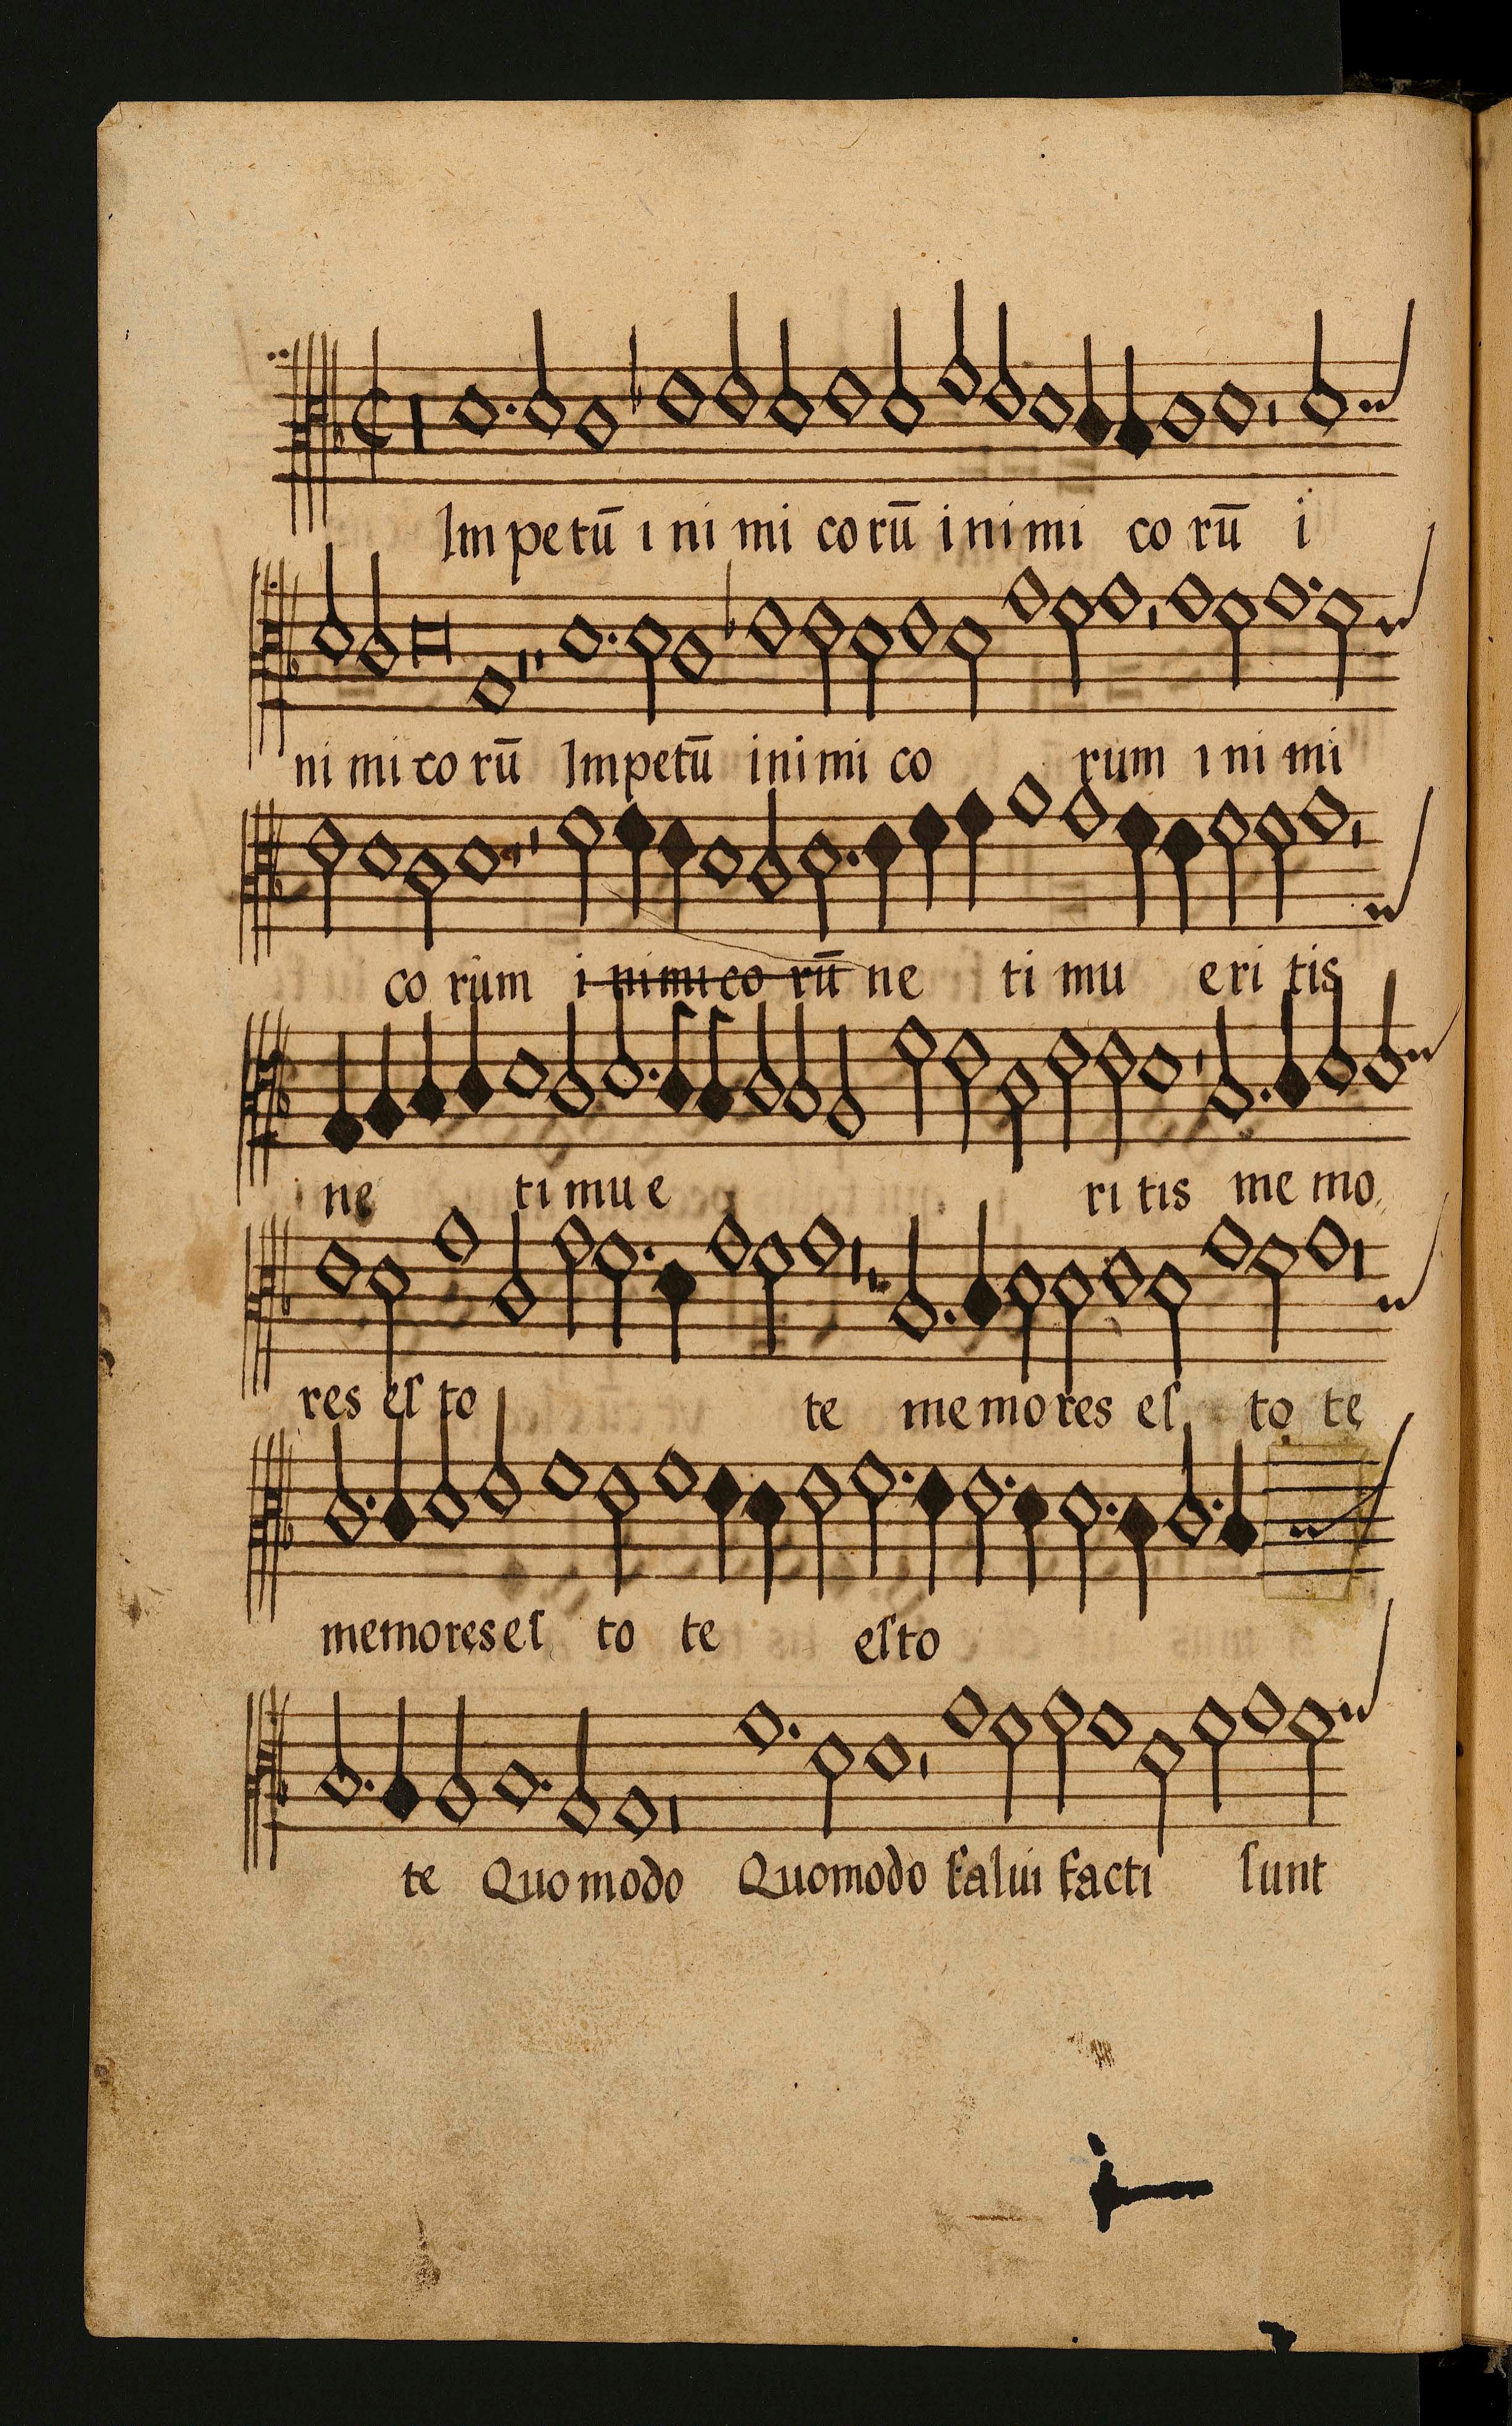 Im petū i ni mi co rū i ni mi co rū i
ni mi co rū Impetū inimi co rum i ni mi
co rum i nimico rū ne ti mu eri tis
ne ti mu e ri tis me mo
res eſ to te memores eſ to te
memores eſ to te eſto
te Quo modo Quomodo ſalui facti ſunt